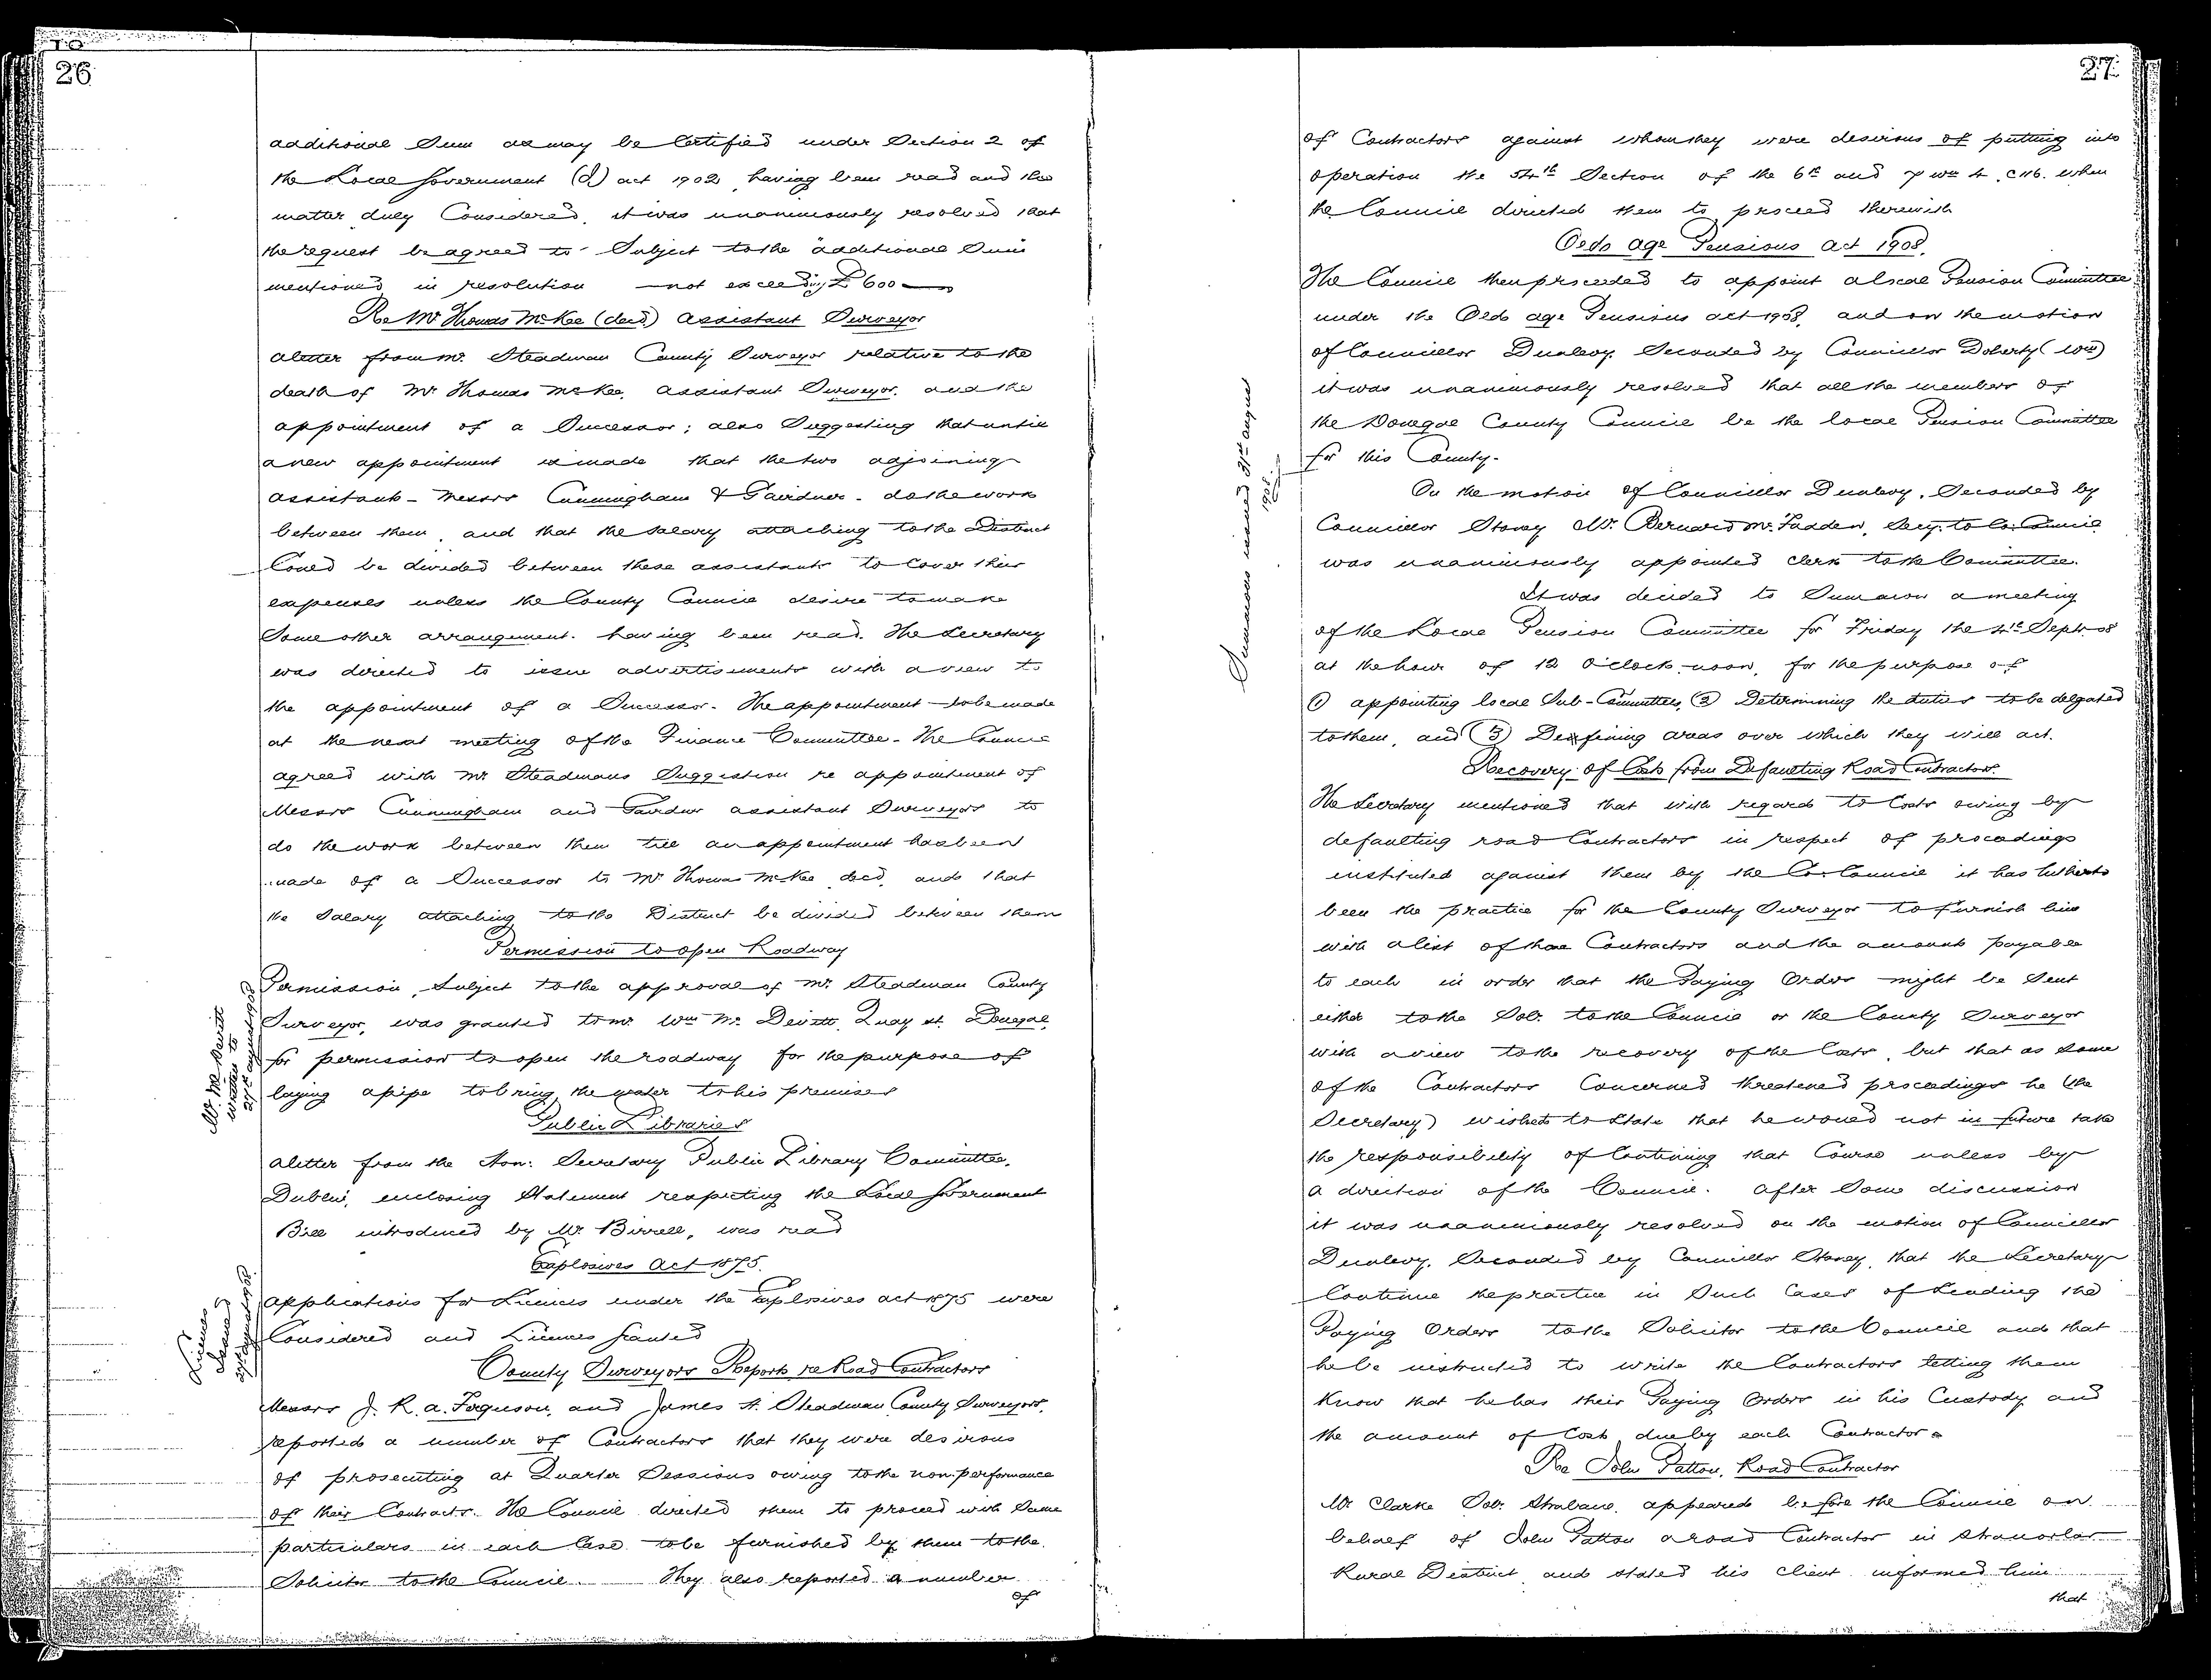 26
additional Sum as may be Certified under Section 2 of
the Local Government (I) act 1902 having been read and the
matter duly Considered, it was unanimously resolved that
the request be agreed to Subject to the additional Sum
mentioned in resolution not exceeding £600
Re Mr Thomas McKee (decd) Assistant Surveyor
a letter from Mr. Steadman County Surveyor relative to the
death of Mr Thomas McKee, Assistant Surveyor, and the
appointment of a Successor; also Suggesting that until
a new appointment is made that the two adjoining
assistants - Messrs Cunningham & Gairdner - do the work
between them, and that the salary attaching to the District
Could be divided between these assistants to Cover their
expenses unless the County Council desire to make
Some other arrangement. having been read. The Secretary
was directed to issue advertisements with a view to
the appointment of a Successor. The appointment to be made
at the next meeting of the Finance Committee. The Council
agreed with Mr Steadmans Suggestion re appointment of
Messrs Cunningham and Gairdner assistant Surveyors to
do the work between them till an appointment has been
made of a Successor to Mr Thomas McKee decd, and that
the Salary attaching to the District be divided between them
Permission to open Roadway
Permission, Subject to the approval of Mr. Steadman County
Surveyor, was granted to Mr. Wm Mc Devitt, Quay st. Donegal,
for permission to open the roadway for the purpose of
laying a pipe to bring the water to his premises
Mr. McDevitt
written to
27th august 1908
Public Libraries
a letter from the Hon: Secretary Public Library Committee,
Dublin, enclosing Statement respecting the Local Government
Bill introduced by Mr. Birrell, was read
Explosives Act 1875.
Applications for Licences under the Explosives act 1875 were
Considered and Licences Granted
Licences
Issued
27th august 1908
County Surveyors Reports re Road Contractors
Messrs J. R. A. Ferguson, and James H. Steadman County Surveyors,
reported a number of Contractors that they were desirous
of prosecuting at Quarter Sessions owing to the non-performance
of their Contracts. The Council directed them to proceed with Same
particulars in each Case to be furnished by them to the
Solicitor to the Council. They also reported a number
of
27.
of Contractors against whom they were desirous of putting into
operation the 54th Section of the 6th and 7 Wm 4, C 116. when
the Council directed them to proceed therewith
Old age Pensions Act 1908.
The Council then proceeded to appoint a local Pension Committee
under the Old age Pensions act 1908, and on the motion
of Councillor Dunlevy, Seconded by Councillor Doherty (Wm)
it was unanimously resolved that all the members of
the Donegal County Council be the local Pension Committee
for this County.
On the motion of Councillor Dunlevy, Seconded by
Councillor Storey Mr. Bernard Mc. Fadden, Secy. to Co. Council
was unanimously appointed Clerk to the Committee.
It was decided to Summon a meeting
of the Local Pension Committee for Friday the 4th Sept. 08
at the hour of 12 O'clock noon, for the purpose of
(1) appointing local Sub-Committees, (2) Determining the duties to be delgated
to them, and (3) Defining areas over which they will act.
Summonses issued 31st august
1908
Recovery of Costs from Defaulting Road Contractors.
The Secretary mentioned that with regard to Costs owing by
defaulting road Contractors in respect of proceedings
instituted against them by the Co. Council it has hitherto
been the practice for the County Surveyor to furnish him
with a list of those Contractors and the amounts payable
to each in order that the Paying Orders might be Sent
either to the Sol: to the Council or the County Surveyor
with a view to the recovery of the Costs, but that as Some
of the Contractors Concerned threatened proceedings he (the
Secretary) wished to State that he would not in future take
the responsibility of Contining that Course unless by
a direction of the Council. After Some discussion
it was unanimously resolved on the motion of Councillor
Dunlevy, Seconded by Councillor Storey, that the Secretary
Continue the practice in Such Cases of Sending the
Paying Orders to the Solicitor to the Council and that
he be instructed to write the Contractors letting them
Know that he has their Paying Orders in his Custody and
the amount of Costs due by each Contractor
Re John Patton, Road Contractor
Mr. Clarke Sol: Strabane, appeared before the Council on
behalf of John Patton a road Contractor in Stranorlar
Rural District and stated his client informed him
that